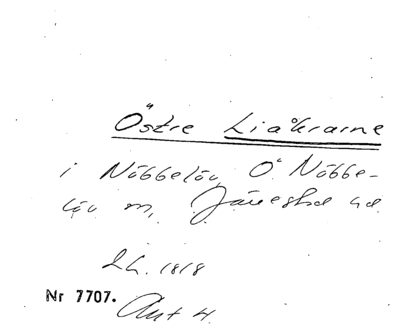 Östre Liaåkrarne
i Nöbbelöv, Ö Nöbbe-
löv sn, Järrestad hd
LL. 1818
Nr 7707.
Akt 4